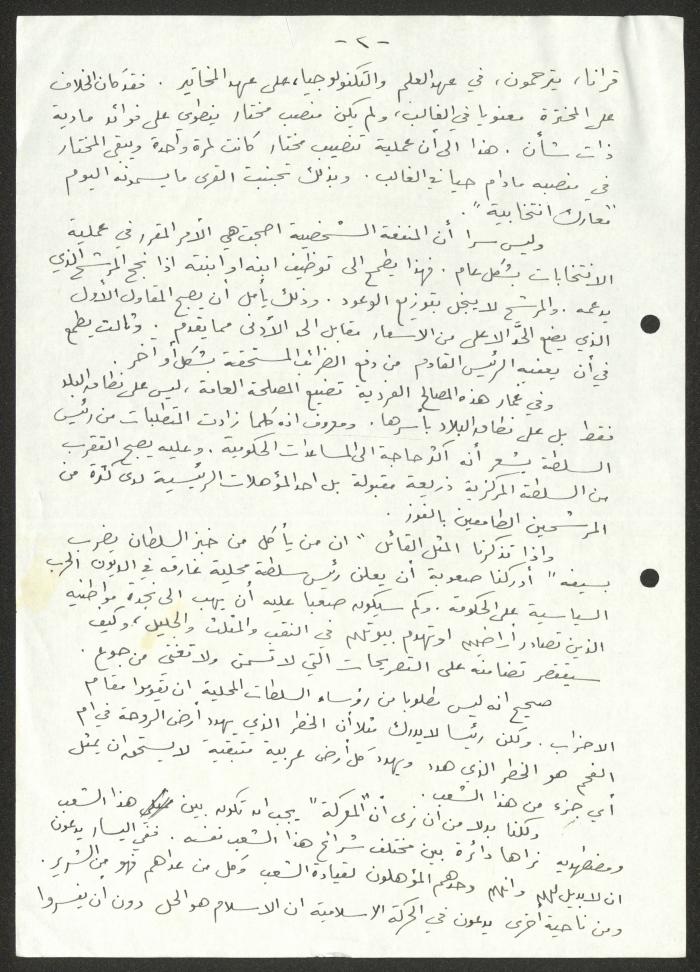 - ٢ -
قرانا، يترحمون، في عهد العلم والتكنولوجيا، على عهد المخاتير. فقد كان الخلاف
على المخترة معنويا في الغالب، ولم يكن منصب مختار ينطوي على فوائد مادية
ذات شأن. هذا الى أن عملية تنصيب مختار كانت لمرة واحدة ويبقى المختار
في منصبه مادام حيا في الغالب. وبذلك تجنبت القرى ما يسمونه اليوم
"معارك انتخابية".
وليس سرا أن المنفعة الشخصية اصبحت هي الأمر المقرر في عملية
الانتخابات بشكل عام. فهذا يطمح الى توظيف ابنه او ابنته اذا نجح المرشح الذي
يدعمه. والمرشح لا يبخل بتوزيع الوعود. وذلك يأمل أن يصبح المقاول الأول
الذي يضع الحد الاعلى من الاسعار مقابل الحد الأدنى مما يقدم. وثالث يطمع
في أن يعفيه الرئيس القادم من دفع الضرائب المستحقة بشكل أو آخر.
وفي غمار هذه المصالح الفردية تضيع المصلحة العامة، ليس على نطاق البلد
فقط بل على نطاق البلاد بأسرها. ومعروف انه كلما زادت المتطلبات من رئيس
السلطة يشعر أنه اكثر حاجة الى المساعدات الحكومية. وعليه يصبح التقرب
من السلطة المركزية ذريعة مقبولة بل احد المؤهلات الرئيسية لدى كثرة من
المرشحين الطامعين بالفوز.
واذا تذكرنا المثل القائل "ان من يأكل من خبز السلطان يضرب
بسيفه" أدركنا صعوبة أن يعلن رئيس سلطة محلية غارقة في الديون الحرب
السياسية على الحكومة. وكم سيكون صعبا عليه أن يهب الى نجدة مواطنيه
الذين تصادر أراضيهم او تهدم بيوتهم في النقب والمثلث والجليل، وكيف
سيقتصر تضامنه على التصريحات التي لا تسمن ولا تغني من جوع.
صحيح انه ليس مطلوبا من رؤساء السلطات المحلية ان يقوموا مقام
الاحزاب. ولكن رئيسا لا يدرك مثلا أن الخطر الذي يهدد أرض الروحة في ام
الفحم هو الخطر الذي هدد ويهدد كل أرض عربية متبقية لا يستحق ان يمثل
أي جزء من هذا الشعب.
ولكننا بدلا من ان نرى أن "المعركة" يجب ان تكون بين هذا الشعب
ومضطهديه نراها دائرة بين مختلف شرائح هذا الشعب نفسه. ففي اليسار يدعون
ان لا بديل لهم وانهم وحدهم المؤهلون لقيادة الشعب وكل من عداهم فهو من الشرير.
ومن ناحية أخرى يدعون في الحركة الاسلامية ان الاسلام هو الحل دون أن يفسروا